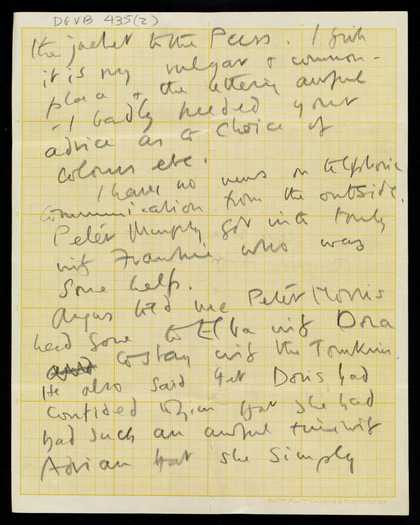 DGVB 435(2)
the jacket to the Press. I think
it is very vulgar & common-
place & the lettering awful
- I badly needed your
advice as to choice of
colours etc.
I have no news or telephonic
communication from the outside.
Peter Murphy got in touch
with Frankie who was
some help.
Angus told me Peter Morris
had gone to Elba with Dora
to stay with the Tomkins.
He also said that Doris had
confided to him that she had
had such an awful time with
Adrian that she simply